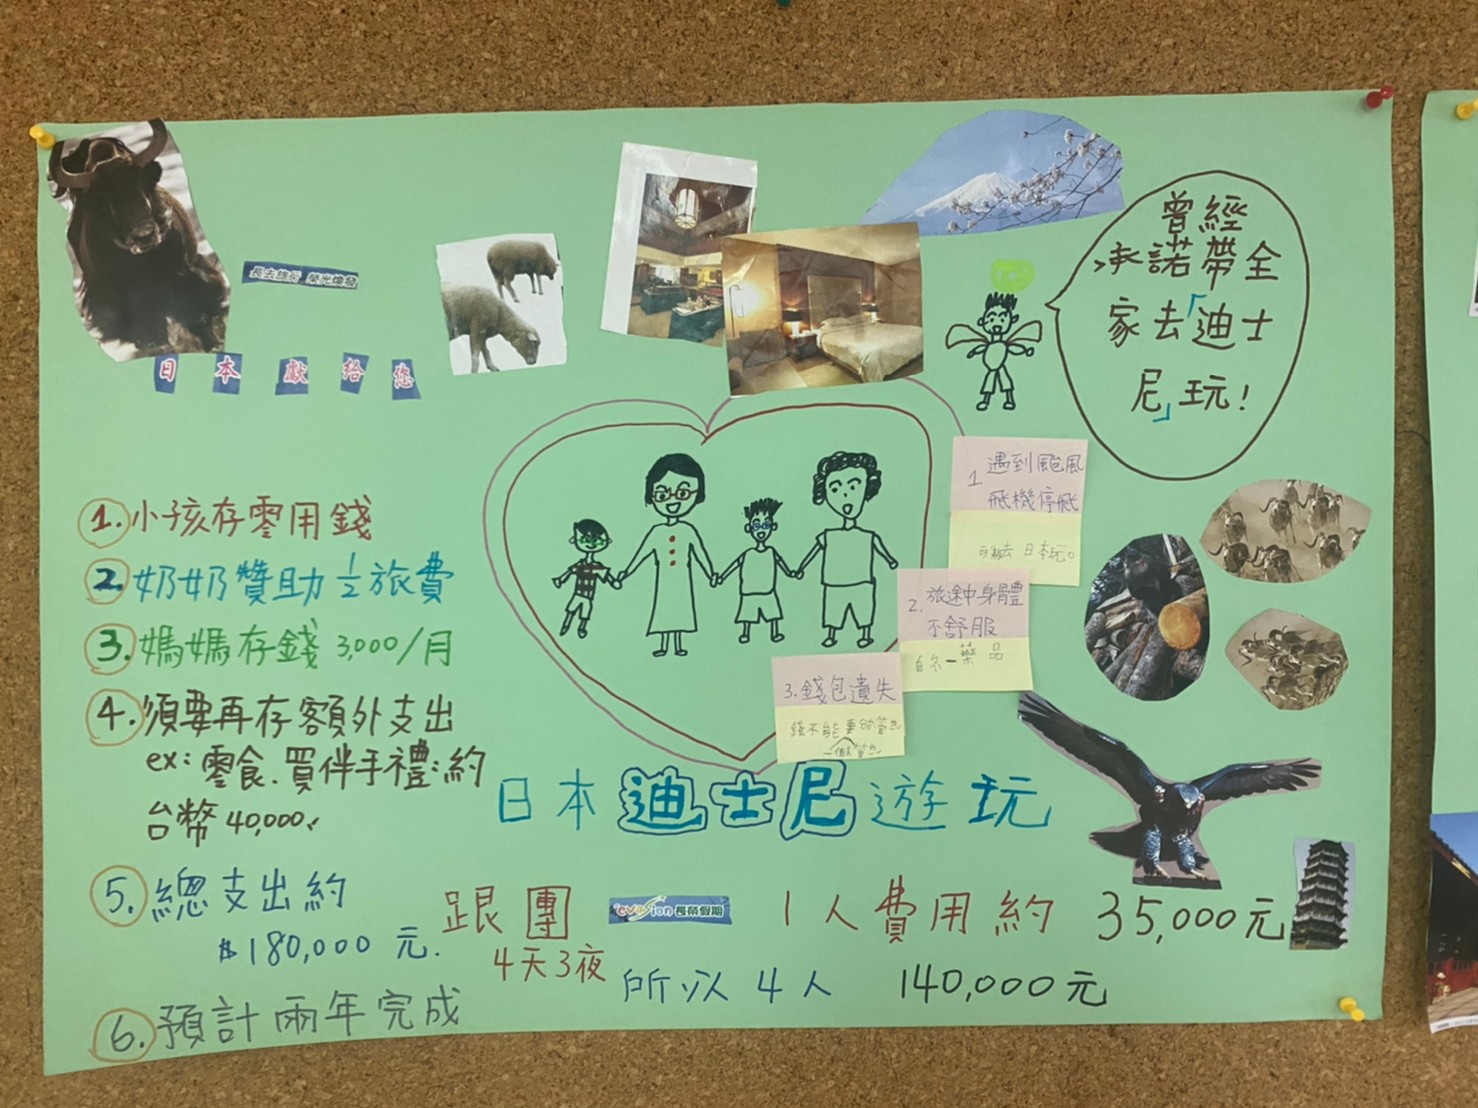 長去旅行 榮光煥發
日本獻給您
曾經
承諾帶全
家去「迪士
尼」玩!
1.小孩存零用錢
2.奶奶贊助½旅費
3.媽媽存錢 3,000/月
4.須要再存額外支出
ex:零食.買伴手禮:約
台幣 40,000.
5.總支出約
$180,000 元.
6.預計兩年完成
1 遇到颱風
飛機停飛
去日本玩。
2.旅途中身體
不舒服
藥品
3.錢包遺失
錢不能
日本迪士尼遊玩
跟團 evasion 長榮假期 1人費用約 35,000元
4天3夜
所以 4人 140,000元